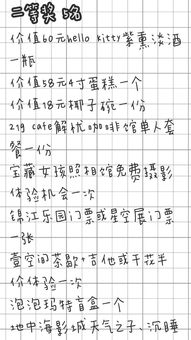 二等奖 5名
价值60元hello kitty紫熏淡酒
一瓶
价值58元4寸蛋糕一个
价值18元椰子碗一份
219 cafe解忧咖啡馆单人套
餐一份
宝藏女孩照相馆免费摄影
体验机会一次
锦江乐园门票或星空展门票
一张
壹空间茶歇+吉他或干花半
价体验一次
泡泡玛特盲盒一个
地中海影城天气之子、沉睡